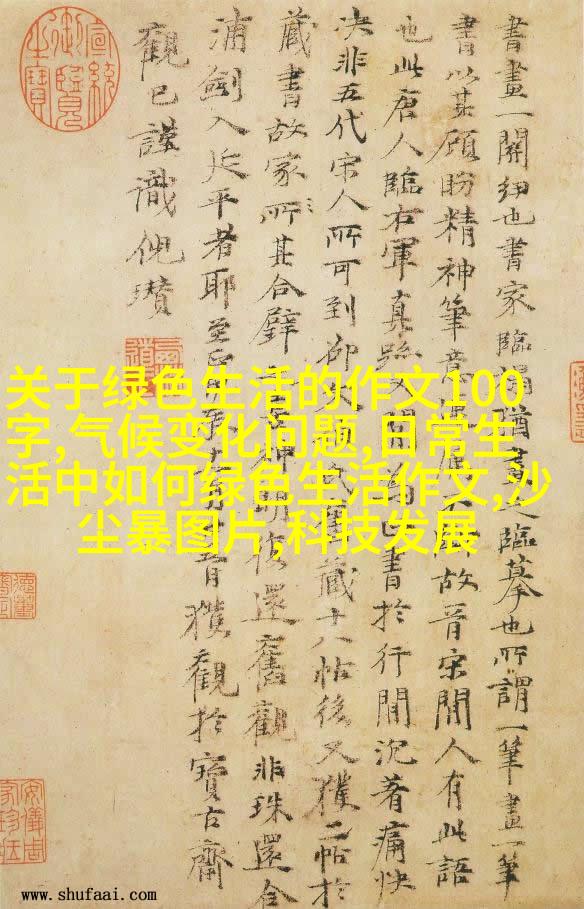 書畫一關紐也書家臨猶畫之臨摹也所謂一筆畫一筆
書以其顧盼精神筆意故晉宋間人有此語
也此唐人臨右軍真跡又書於行間沉著痛快
決非五代宋人所可到氏舊藏十八帖後又獲二帖於
藏書故家所其合璧神明復還舊觀非珠還合
浦劍入延平者耶至獲觀於寶古齋
觀已謹識倪瓚
宣統御覽之寶
关于绿色生活的作文100
字,气候变化问题,日常生
活中如何绿色生活作文,沙
尘暴图片,科技发展
www.shufaai.com